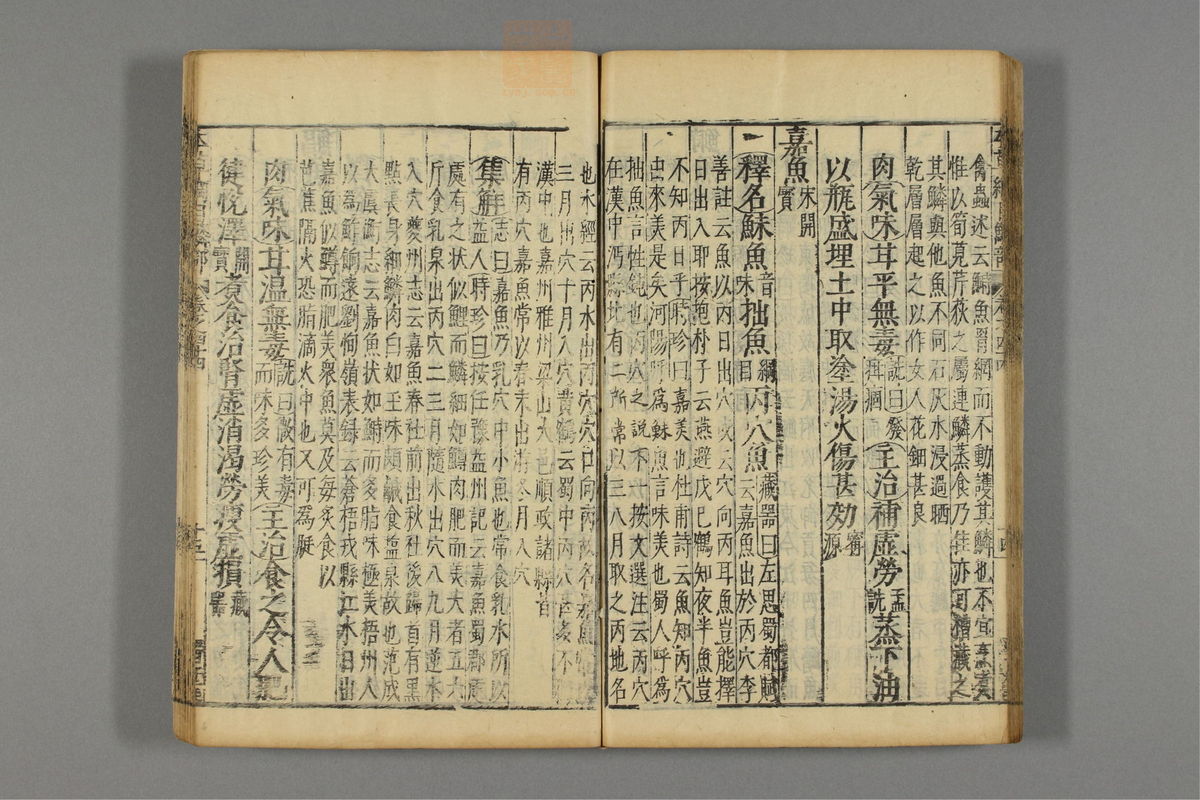 禽蟲述云鰣魚罥網而不動護其鱗也不宜烹煮
惟以筍莧芹荻之屬連鱗蒸食乃佳亦可糟藏之
其鱗與他魚不同石灰水浸過晒
乾層層起之以作女人花鈿甚良
肉氣味甘平無毒詵曰發疳痼主治補虛勞孟詵蒸下油
以瓶盛埋土中取塗湯火傷甚効寗源
嘉魚宋開寶
釋名鮇魚音味拙魚綱目丙穴魚藏器曰左思蜀都賦云嘉魚出於丙穴李
善註云魚以丙日出穴或云穴向丙耳魚豈能擇
日出入耶按抱朴子云燕避戊己鶴知夜半魚豈
不知丙日乎時珍曰嘉美也杜甫詩云魚知丙穴
由來美是矣河陽呼為鮇魚言味美也蜀人呼為
拙魚言性鈍也丙穴之說不一按文選注云丙穴
在漢中沔縣北有二所常以三八月取之丙地名
也水經云丙水出丙穴穴口向丙故名嘉魚
三月出穴十月入穴黃鶴云蜀中丙穴甚多不
漢中也嘉州雅州梁山大邑順政諸縣皆
有丙穴嘉魚常以春末出游冬月入穴
集解志曰嘉魚乃乳穴中小魚也常食乳水所以益人時珍曰按任豫益州記云嘉魚蜀郡處
處有之狀似鯉而鱗細如鱒肉肥而美大者五六
斤食乳泉出丙穴二三月隨水出穴八九月逆水
入穴夔州志云嘉魚春社前出秋社後歸首有黑
點長身細鱗肉白如玉味頗鹹食鹽泉故也范成
大虞衡志云嘉魚狀如鰣而多脂味極美梧州人
以為鮓餉遠劉恂嶺表録云蒼梧戎縣江水口出
嘉魚似鱒而肥美衆魚莫及每炙食以
芭蕉隔火恐脂滴火中也又可為脡
肉氣味甘溫無毒詵曰微有毒而味多珍美主治食之令人肥
健悅澤開寶煮食治腎虛消渴勞瘦虛損藏器